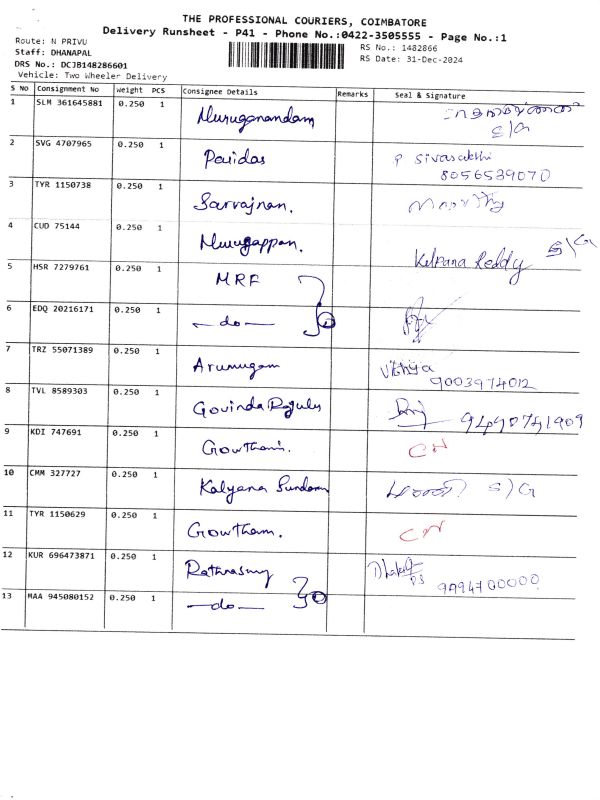 THE PROFESSIONAL COURIERS, COIMBATORE
Delivery Runsheet - P41 - Phone No.:0422-3505555 - Page No.:1
Route: N PRIVU
Staff: DHANAPAL
DRS No.: DCJB148286601
Vehicle: Two Wheeler Delivery
RS No.: 1482866
RS Date: 31-Dec-2024
S No Consignment No Weight PCS Consignee Details Remarks Seal & Signature
1 SLM 361645881 0.250 1 Muruganandam
S/G
2 SVG 4707965 0.250 1 Paridas P Sivasakthi
8056539070
3 TYR 1150738 0.250 1 Sarvajnan.
4 CUD 75144 0.250 1 Murugappan. Kalpana Reddy S/G
5 HSR 7279761 0.250 1 MRF
6 EDQ 20216171 0.250 1 -do-
7 TRZ 55071389 0.250 1 Arumugam Vithiya
9003974012
8 TVL 8589303 0.250 1 Govinda Rajulu 9490751909
9 KDI 747691 0.250 1 Gowtham. CN
10 CMM 327727 0.250 1 Kalyana Sundaram S/G
11 TYR 1150629 0.250 1 Gowtham. CN
12 KUR 696473871 0.250 1 Rathnasamy
9994700000
13 MAA 945080152 0.250 1 -do-